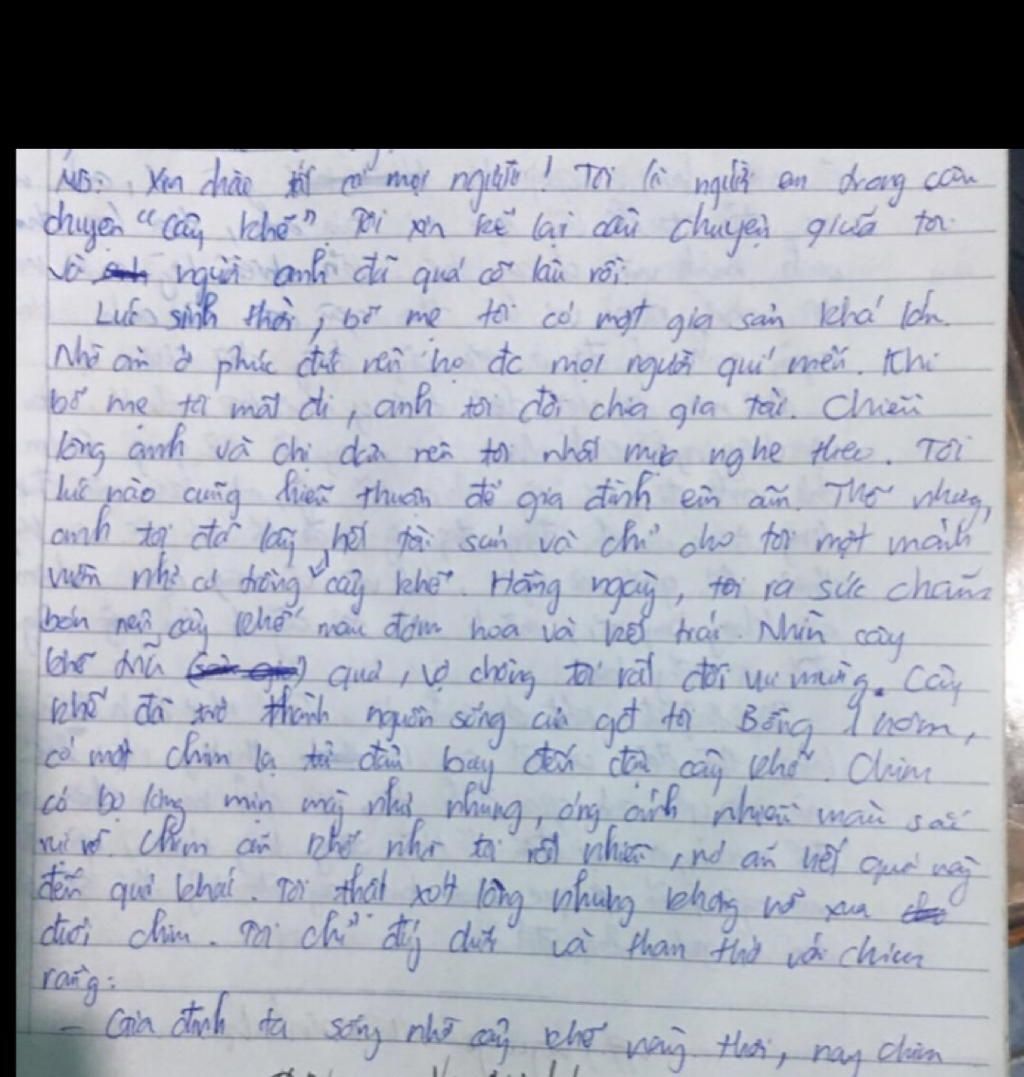 MB: Xin chào tất cả mọi người! Tôi là người em trong câu
chuyện "cây khế". Tôi xin kể lại câu chuyện giữa tôi
và người anh đã quá cố lâu rồi.
Lúc sinh thời, bố mẹ tôi có một gia sản khá lớn.
Nhờ ăn ở phúc đức nên họ đc mọi người quí mến. Khi
bố mẹ tôi mất đi, anh tôi đòi chia gia tài. Chiều
lòng anh và chị dâu nên tôi nhất mực nghe theo. Tôi
lúc nào cũng hiếu thuận để gia đình êm ấm. Thế nhưng,
anh tôi đã lấy hết tài sản và chỉ cho tôi một mảnh
vườn nhỏ có trồng cây khế. Hằng ngày, tôi ra sức chăm
bón nên cây khế mau đơm hoa và kết trái. Nhìn cây
khế trĩu quả, vợ chồng tôi rất đỗi vui mừng. Cây
khế đã trở thành nguồn sống của gđ tôi. Bỗng 1 hôm,
có một chim lạ từ đâu bay đến đậu cây khế. Chim
có bộ lông mịn mày như nhung, óng ánh nhiều màu sắc
rực rỡ. Chim ăn khế nhà tôi rất nhiều, nó ăn hết quả này
đến quả khác. Tôi thật xót lòng nhưng không nỡ xua
đuổi chim. Tôi chỉ đứng dưới và than thở với chim
rằng:
- Gia đình ta sống nhờ cây khế này thôi, nay chim